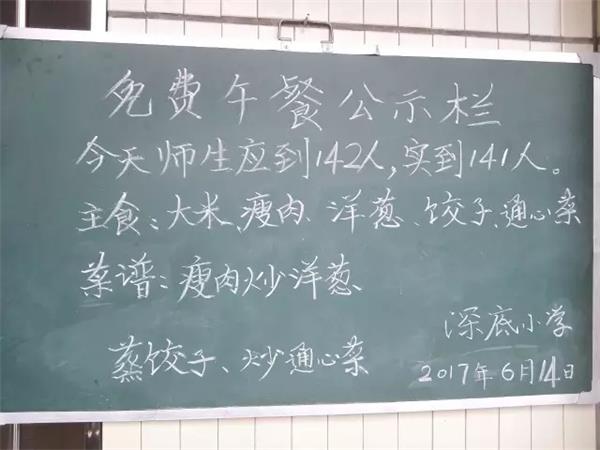 免费午餐公示栏
今天师生应到142人,实到141人。
主食:大米、瘦肉、洋葱、饺子、通心菜
菜谱:瘦肉炒洋葱
蒸饺子、炒通心菜
深底小学
2017年6月14日